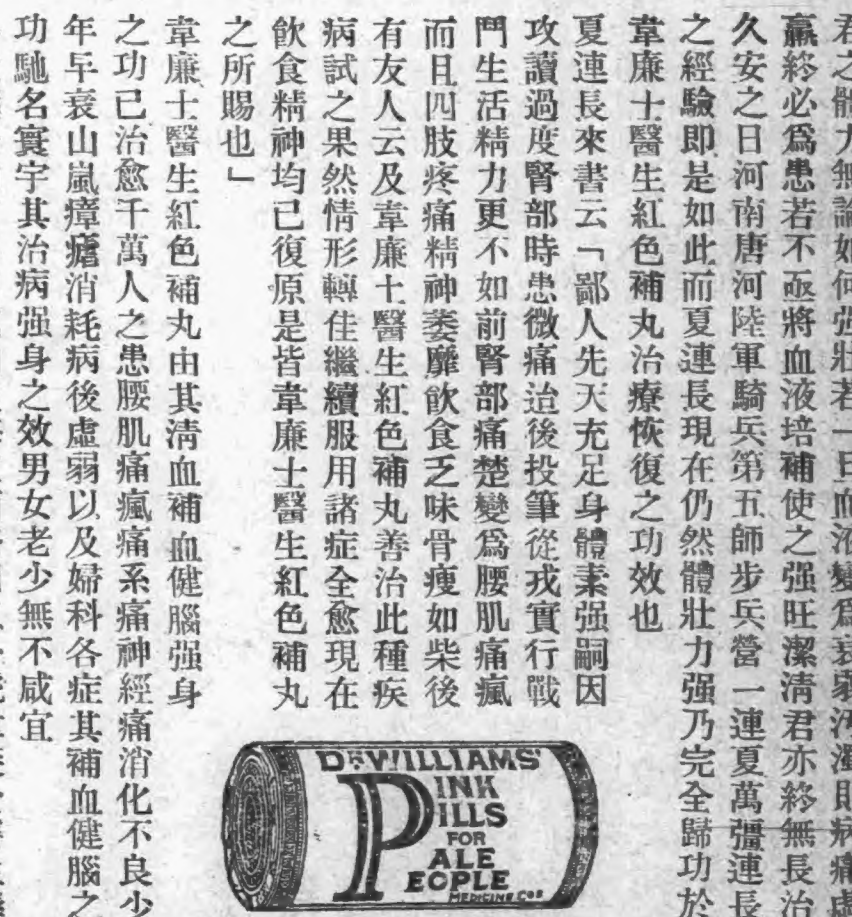 君之體力無論如何强壯若一旦血液變爲衰弱汚濁則病痛虛
羸終必爲患若不亟將血液培補使之强旺潔清君亦終無長治
久安之日河南唐河陸軍騎兵第五師步兵營一連夏萬彊連長
之經驗即是如此而夏連長現在仍然體壯力强乃完全歸功於
韋廉士醫生紅色補丸治療恢復之功效也
夏連長來書云「鄙人先天充足身體素强嗣因
攻讀過度腎部時患微痛迨後投筆從戎實行戰
鬥生活精力更不如前腎部痛楚變爲腰肌痛瘋
而且四肢疼痛精神萎靡飲食乏味骨瘦如柴後
有友人云及韋廉士醫生紅色補丸善治此種疾
病試之果然情形轉佳繼續服用諸症全愈現在
飲食精神均已復原是皆韋廉士醫生紅色補丸
之所賜也」
韋廉士醫生紅色補丸由其淸血補血健腦强身
之功已治愈千萬人之患腰肌痛瘋痛系痛神經痛消化不良少
年早衰山嵐瘴瘧消耗病後虛弱以及婦科各症其補血健腦之
功馳名寰宇其治病强身之效男女老少無不咸宜
DR. WILLIAMS'
PINK
PILLS
FOR
PALE
PEOPLE
MEDICINE Cos